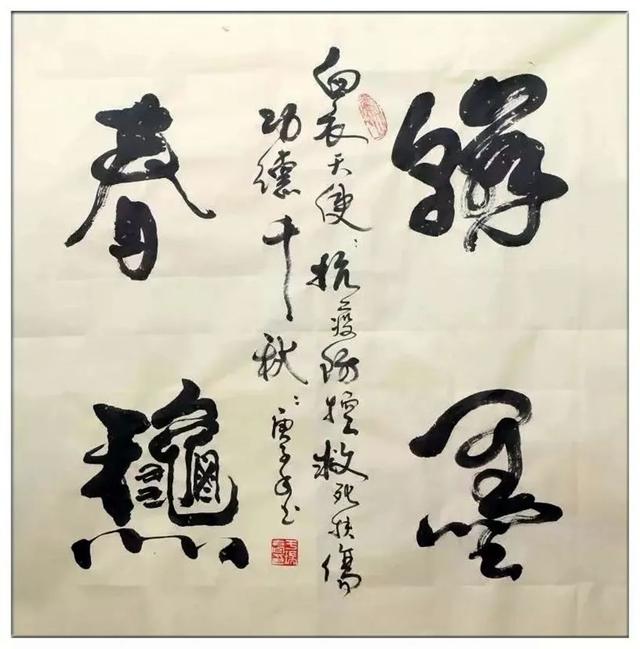 翰墨
白衣天使：抗疫防控救死扶傷
功德千秋：庚子年书
春龝